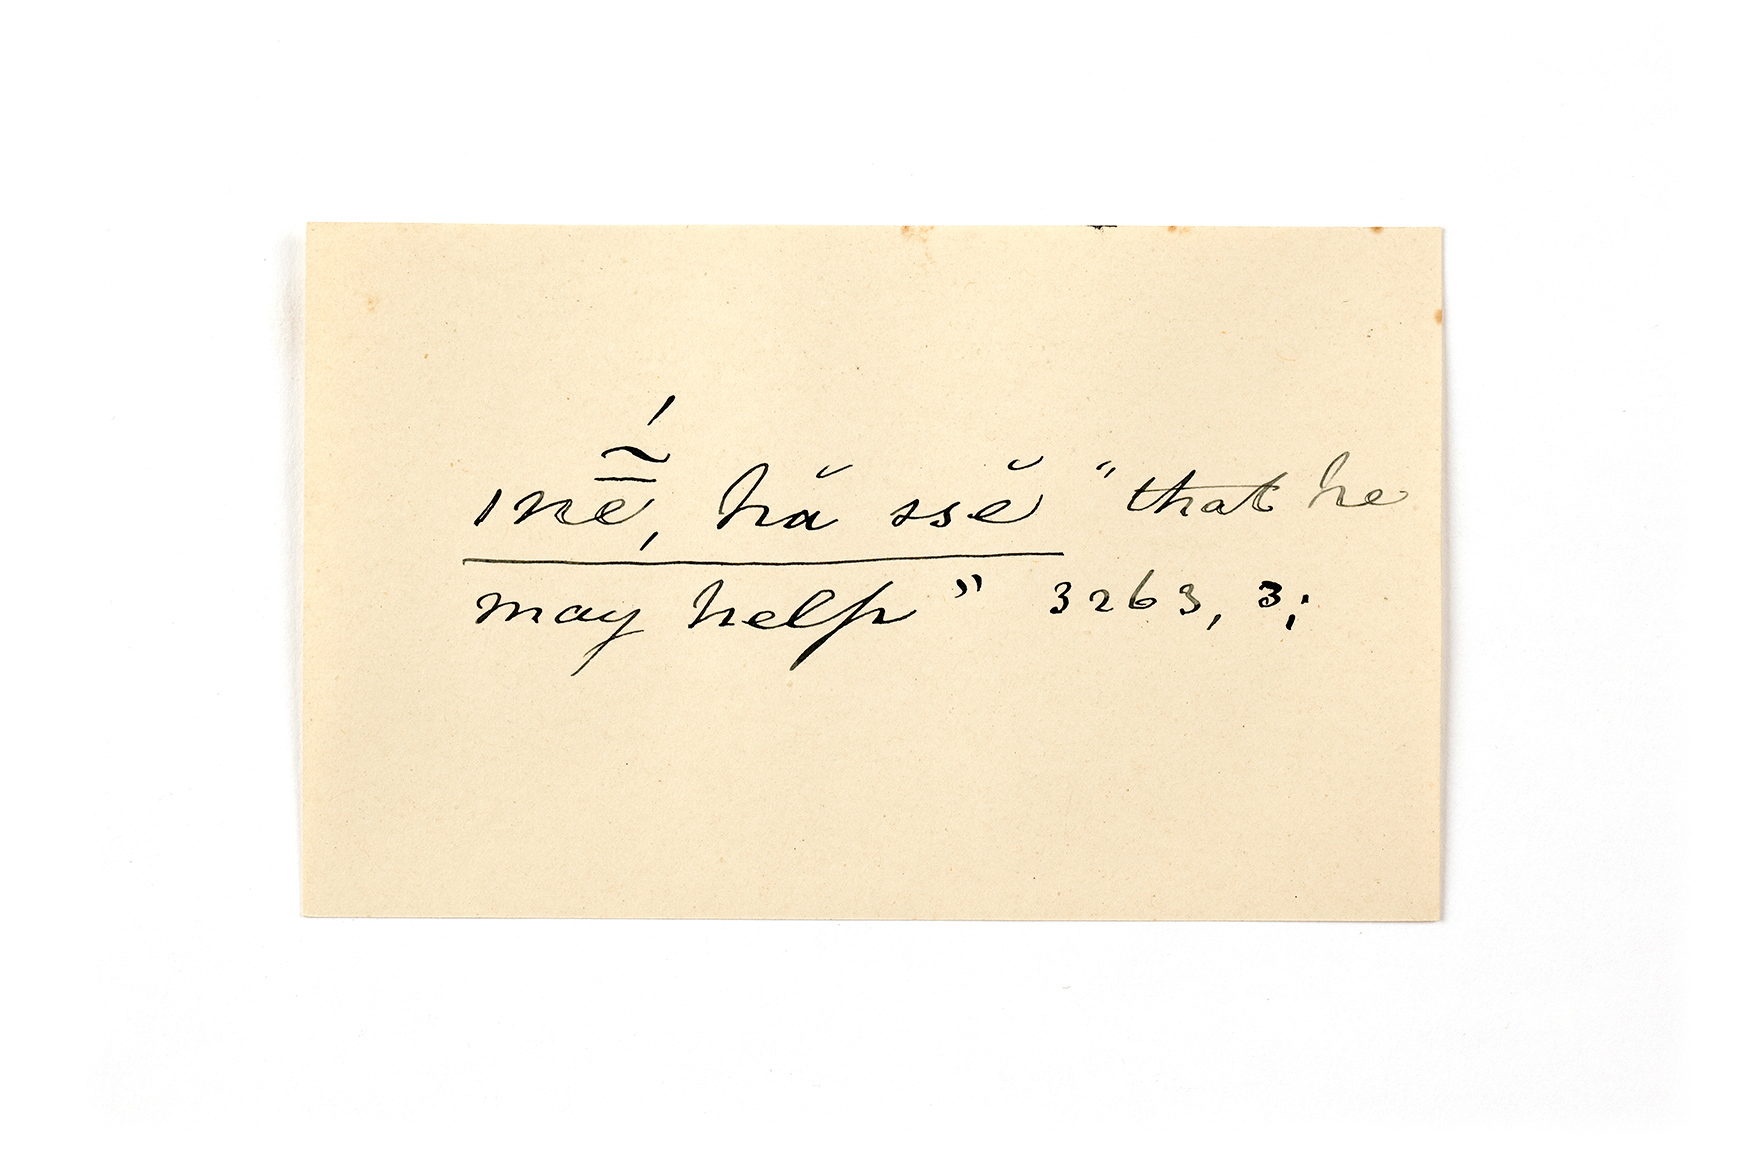 ınē̃́, hă ssĕ "that he
may help" 3263, 3;